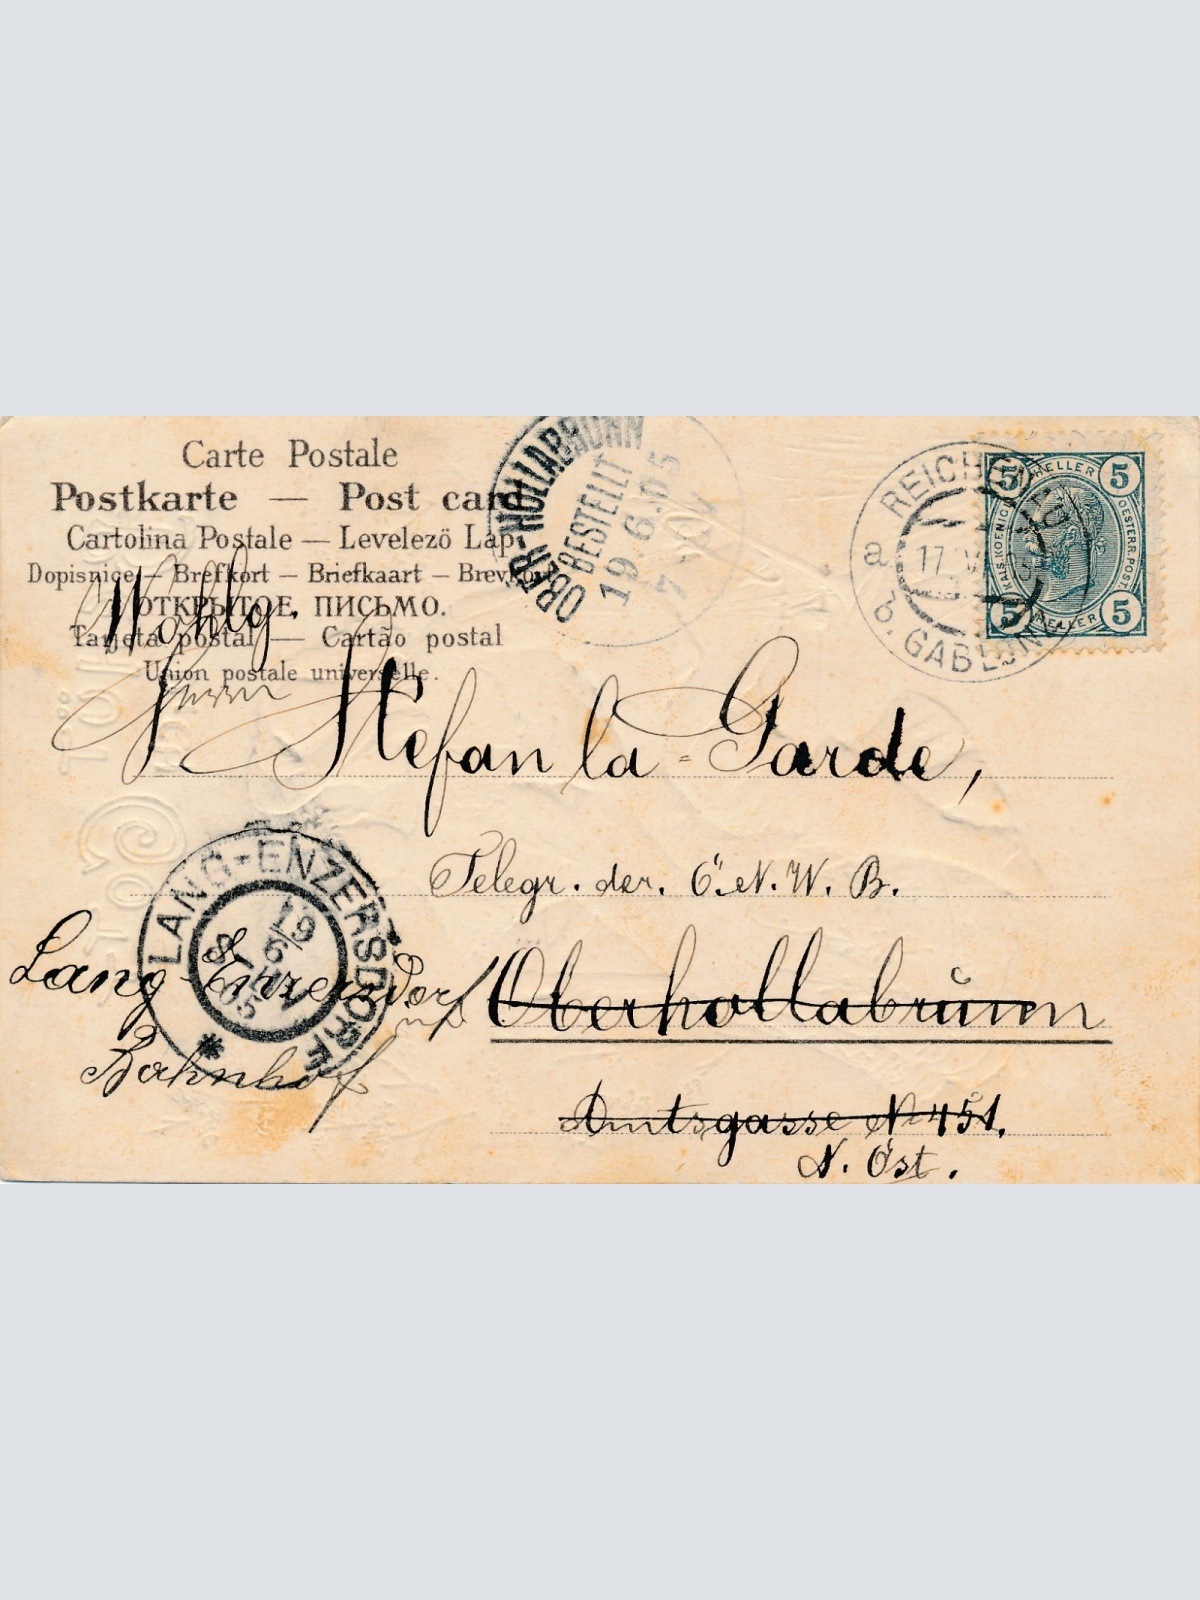 Carte Postale
Postkarte — Post card
Cartolina Postale — Levelezö Lap
Dopisnice — Brefkort — Briefkaart — Brevkort
ОТКРЫТОЕ ПИСЬМО.
Tarjeta postal — Cartão postal
Union postale universelle.
OBER-HOLLABRUNN
BESTELLT
19.6.05
7
5 HELLER 5
KAIS. KOENIGL. OESTERR. POST.
5 HELLER 5
a 17
b. GABLON
Wohlg.
Herrn Stefan la-Garde,
Telegr. der. Ö.N.W.B.
LANG-ENZERSDORF
19
6
05
Lang-Enzersdorf
Oberhollabrünn
Bahnhof
Amtsgasse N 451.
N. Öst.